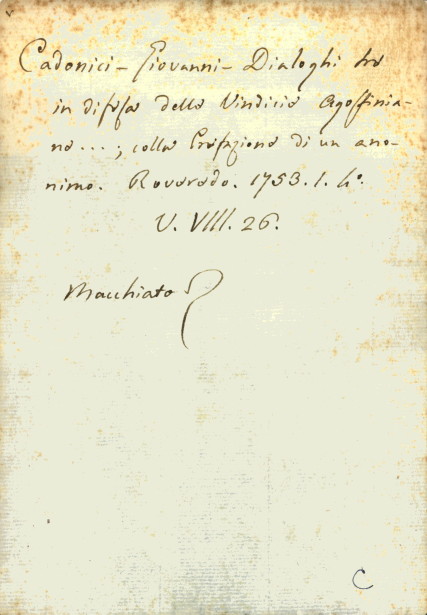 Cadonici - Giovanni - Dialoghi tre
in difesa delle Vindicie Agostinia-
ne...; colla Prefazione di un ano-
nimo. Roveredo. 1753. 1. 4º.
V. VIII. 26.
Macchiato
C